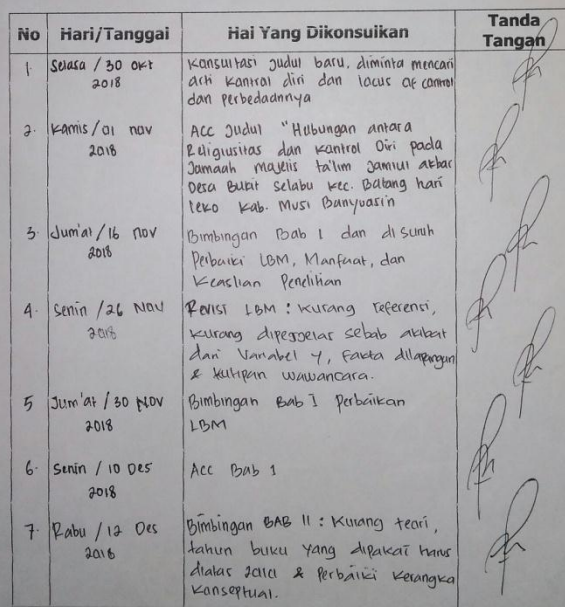 No Hari/Tanggal Hal Yang Dikonsulkan Tanda Tangan
1. Selasa / 30 Okt 2018
Konsultasi Judul baru, diminta mencari
arti Kontrol diri dan locus of control
dan perbedaannya
2. Kamis / 01 nov 2018
ACC Judul "Hubungan antara
Religiusitas dan Kontrol Diri pada
Jamaah majelis ta'lim Jamiul akbar
Desa Bukit Selabu Kec. Batang hari
leko Kab. Musi Banyuasin
3. Jum'at / 16 nov 2018
Bimbingan Bab I dan di suruh
Perbaiki LBM, Manfaat, dan
Keaslian Penelitian
4. Senin / 26 Nov 2018
Revisi LBM : Kurang referensi,
Kurang diperjelas sebab akibat
dari Variabel Y, Fakta dilapangan
& kutipan wawancara.
5 Jum'at / 30 NOV 2018
Bimbingan Bab I Perbaikan
LBM
6. Senin / 10 Des 2018
Acc Bab 1
7. Rabu / 12 Des 2018
Bimbingan BAB II : Kurang teori,
tahun buku yang dipakai harus
diatas & Perbaiki Kerangka
Konseptual.